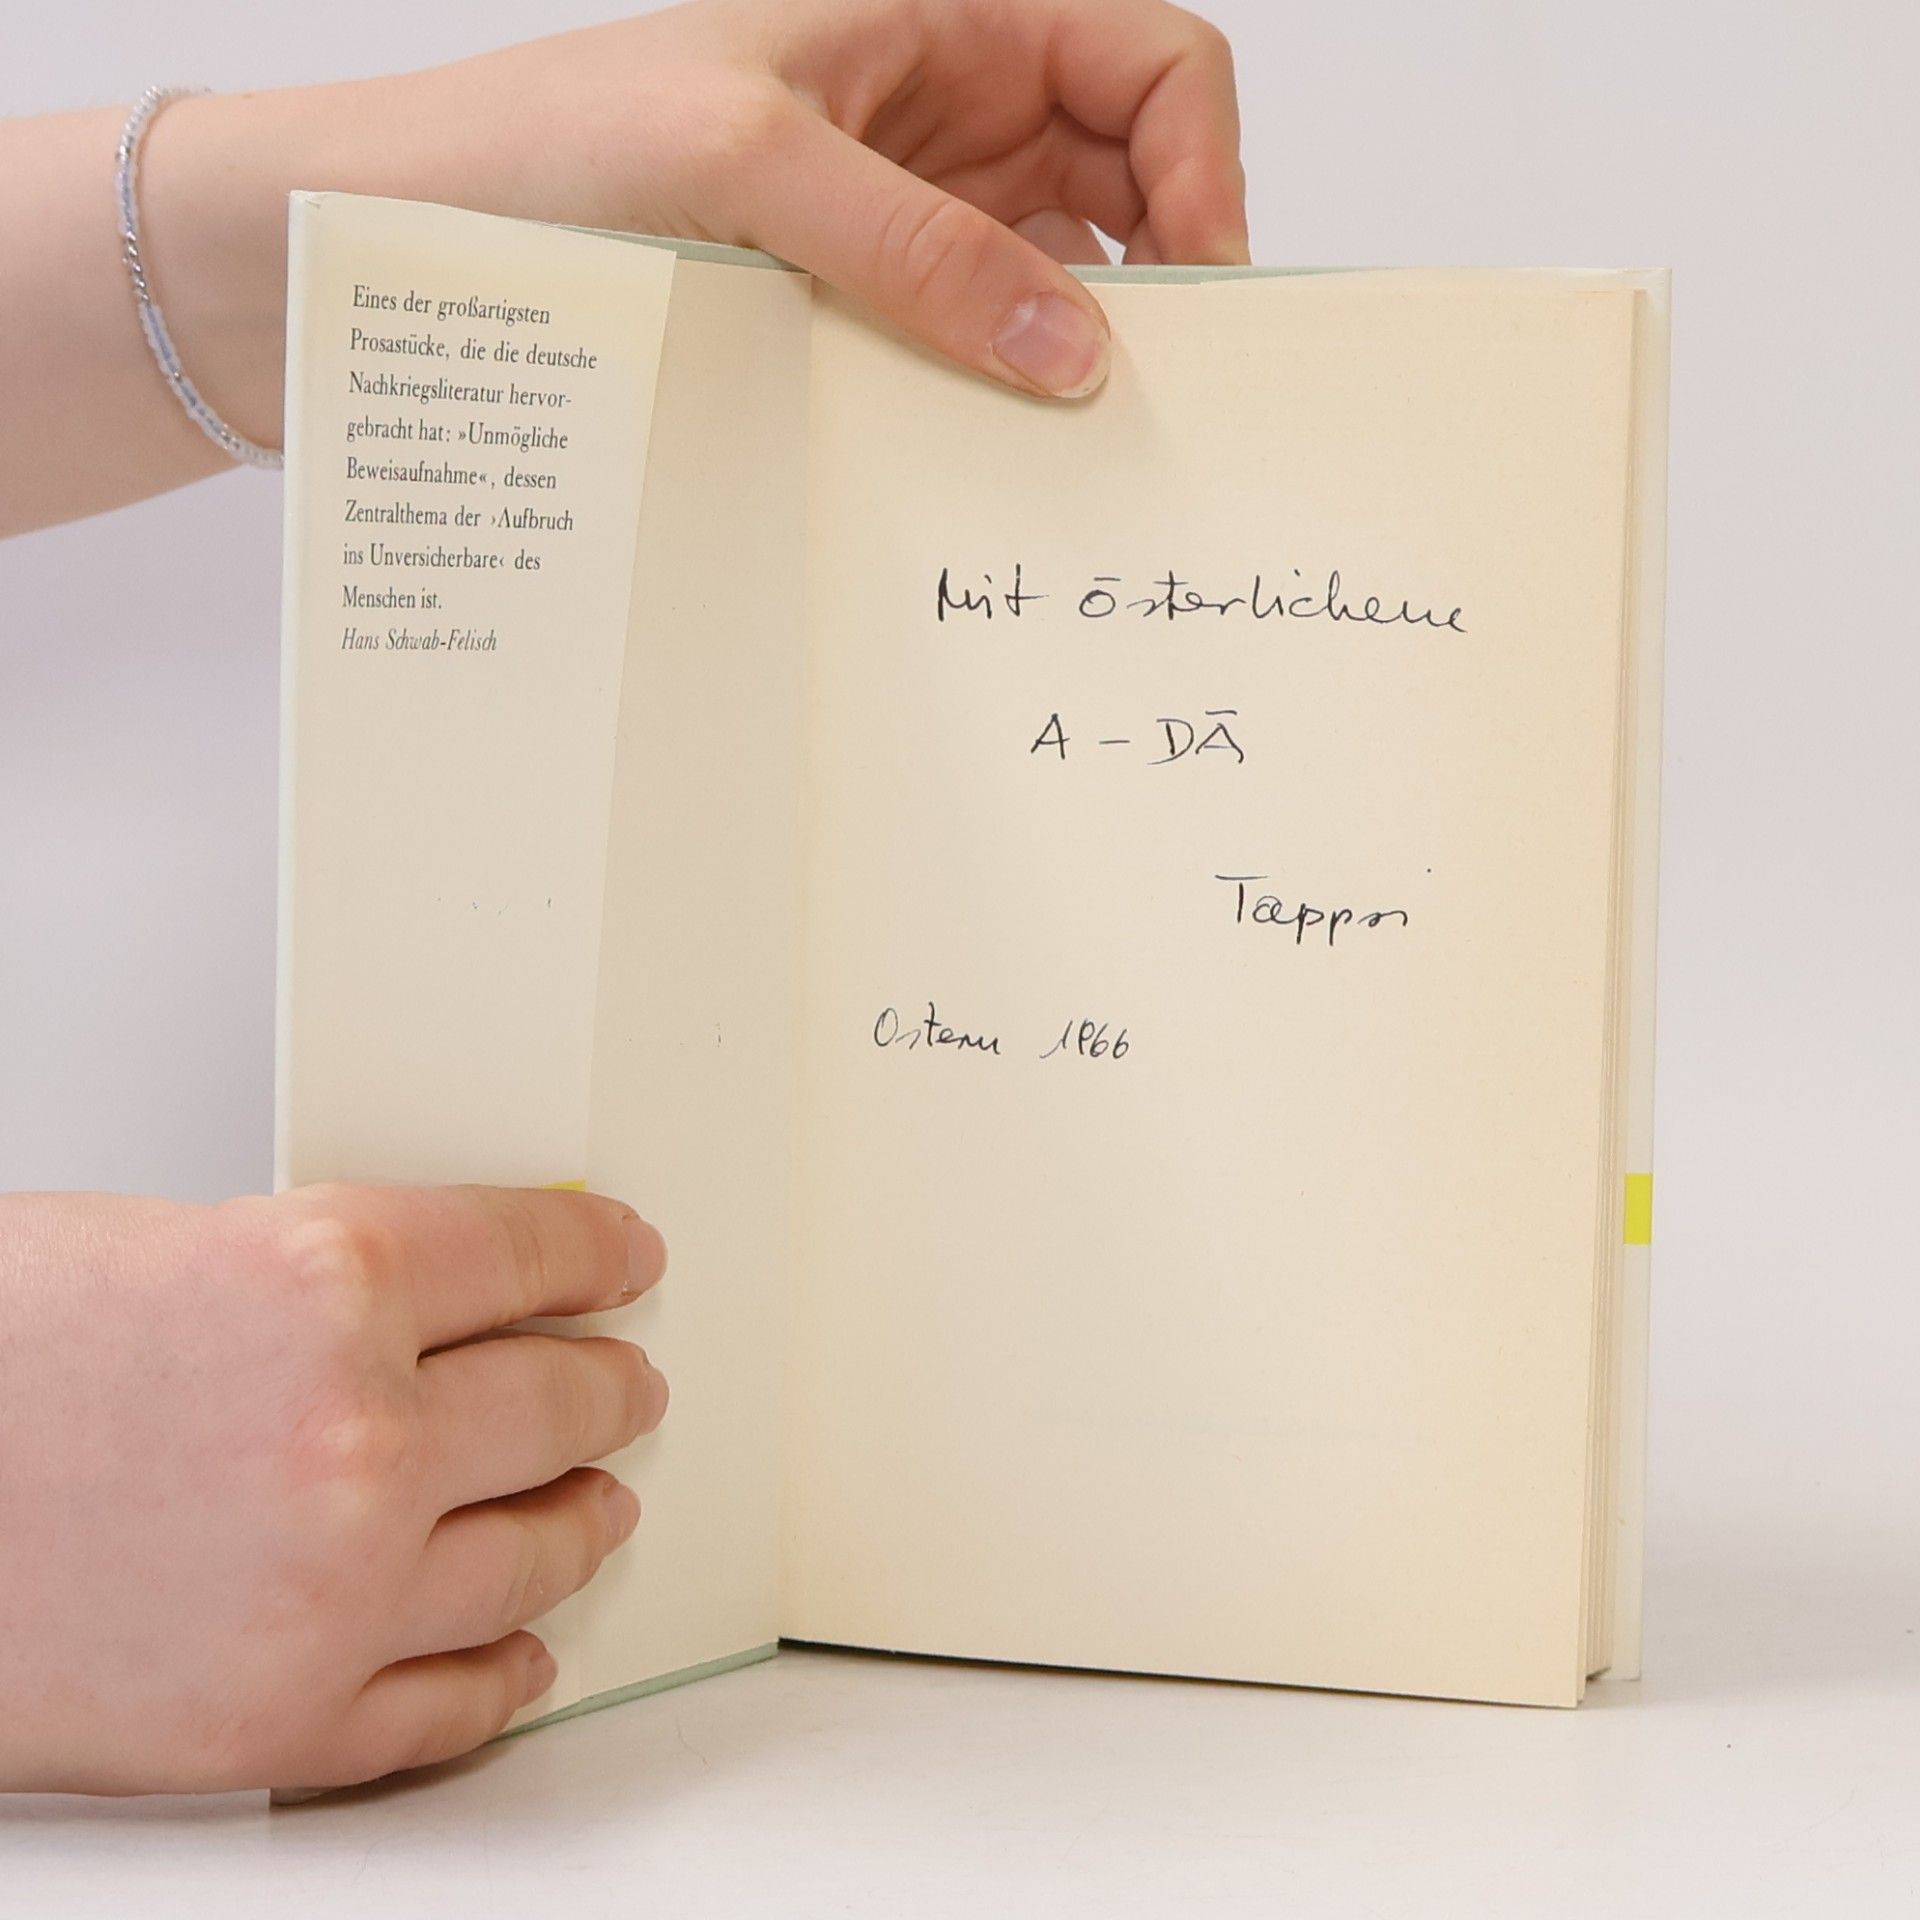 Eines der großartigsten
Prosastücke, die die deutsche
Nachkriegsliteratur hervor-
gebracht hat: »Unmögliche
Beweisaufnahme«, dessen
Zentralthema der ›Aufbruch
ins Unversicherbare‹ des
Menschen ist.
Hans Schwab-Felisch
Mit österlichem
A – DĀ
Ostern 1966